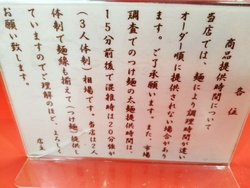 各位
商品提供時間について
当店では、麺により調理時間が違い
オーダー順に提供されない場合があり
ます。ご了承願います。また、市場
調査でのつけ麺の太麺提供時間は、
15分前後で混雑時は20分強が
(3人体制)相場です。当店は2人
体制で麺線も揃えて(つけ麺)提供し
ていますのでご理解のほど、よろしく
お願い致します。
店主